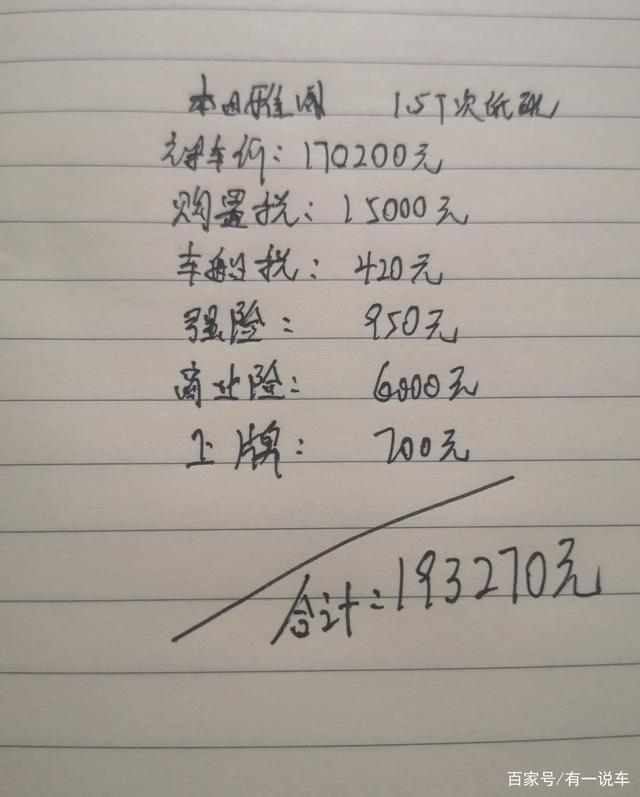 本田雅阁 1.5T次低配
裸车价：170200元
购置税：15000元
车船税：420元
强险：950元
商业险：6000元
上牌：700元
合计：193270元
百家号/有一说车